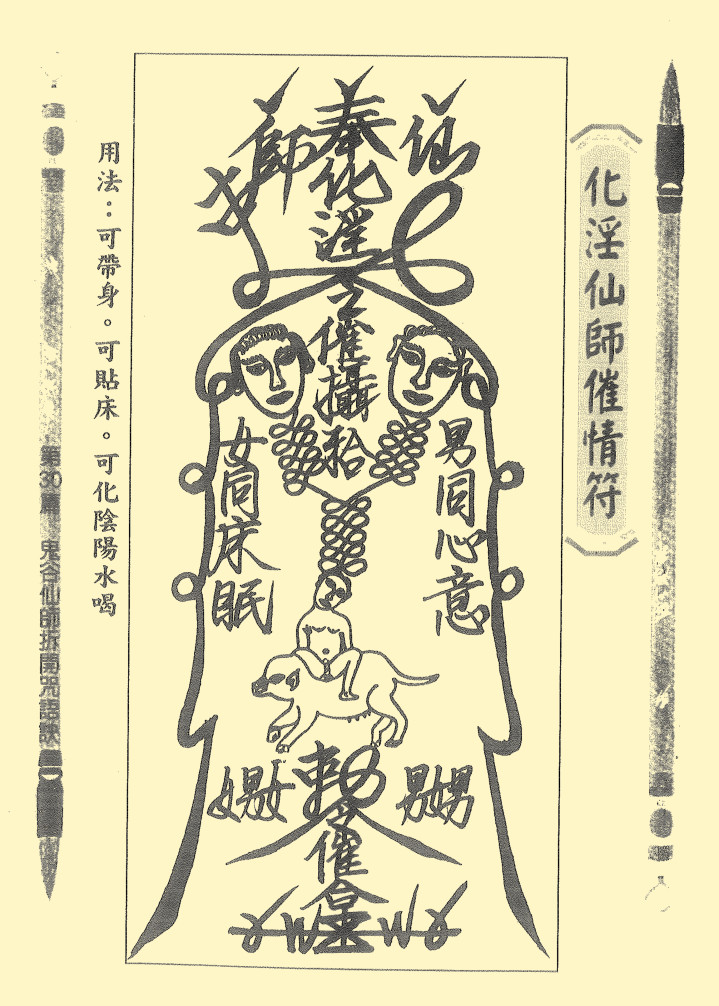 化淫仙師催情符
仙
奉化淫
師
催攝
男同心意
女同床眠
勅
催
用法：可帶身。可貼床。可化陰陽水喝
第30篇 鬼谷仙師拆開咒語訣